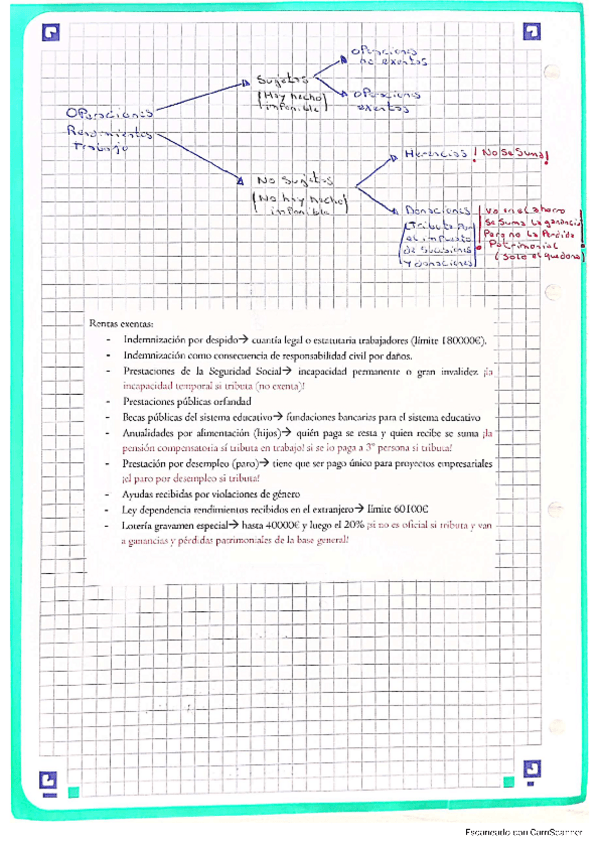 Operaciones
Rendimientos
Trabajo
Sujetas
(Hay hecho
imponible)
Operaciones
no exentas
Operaciones
exentas
No Sujetas
(No hay hecho
imponible)
Herencias ¡No se suma!
Donaciones
(Tributa por
el impuesto
de sucesiones
y donaciones)
Va en el ahorro
se suma la ganancia
Pero no la Perdida
Patrimonial
(Solo el que dona)
Rentas exentas:
- Indemnización por despido→ cuantía legal o estatutaria trabajadores (límite 180000€).
- Indemnización como consecuencia de responsabilidad civil por daños.
- Prestaciones de la Seguridad Social→ incapacidad permanente o gran invalidez ¡la
incapacidad temporal si tributa (no exenta)!
- Prestaciones públicas orfandad
- Becas públicas del sistema educativo→ fundaciones bancarias para el sistema educativo
- Anualidades por alimentación (hijos)→ quién paga se resta y quien recibe se suma ¡la
pensión compensatoria sí tributa en trabajo! si se lo paga a 3º persona si tributa!
- Prestación por desempleo (paro)→ tiene que ser pago único para proyectos empresariales
¡el paro por desempleo si tributa!
- Ayudas recibidas por violaciones de género
- Ley dependencia rendimientos recibidos en el extranjero→ límite 60100€
- Lotería gravamen especial→ hasta 40000€ y luego el 20% ¡si no es oficial si tributa y van
a ganancias y pérdidas patrimoniales de la base general!
Escaneado con CamScanner